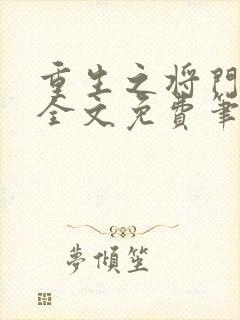 重生之将門
全文免費筆
夢傾笙